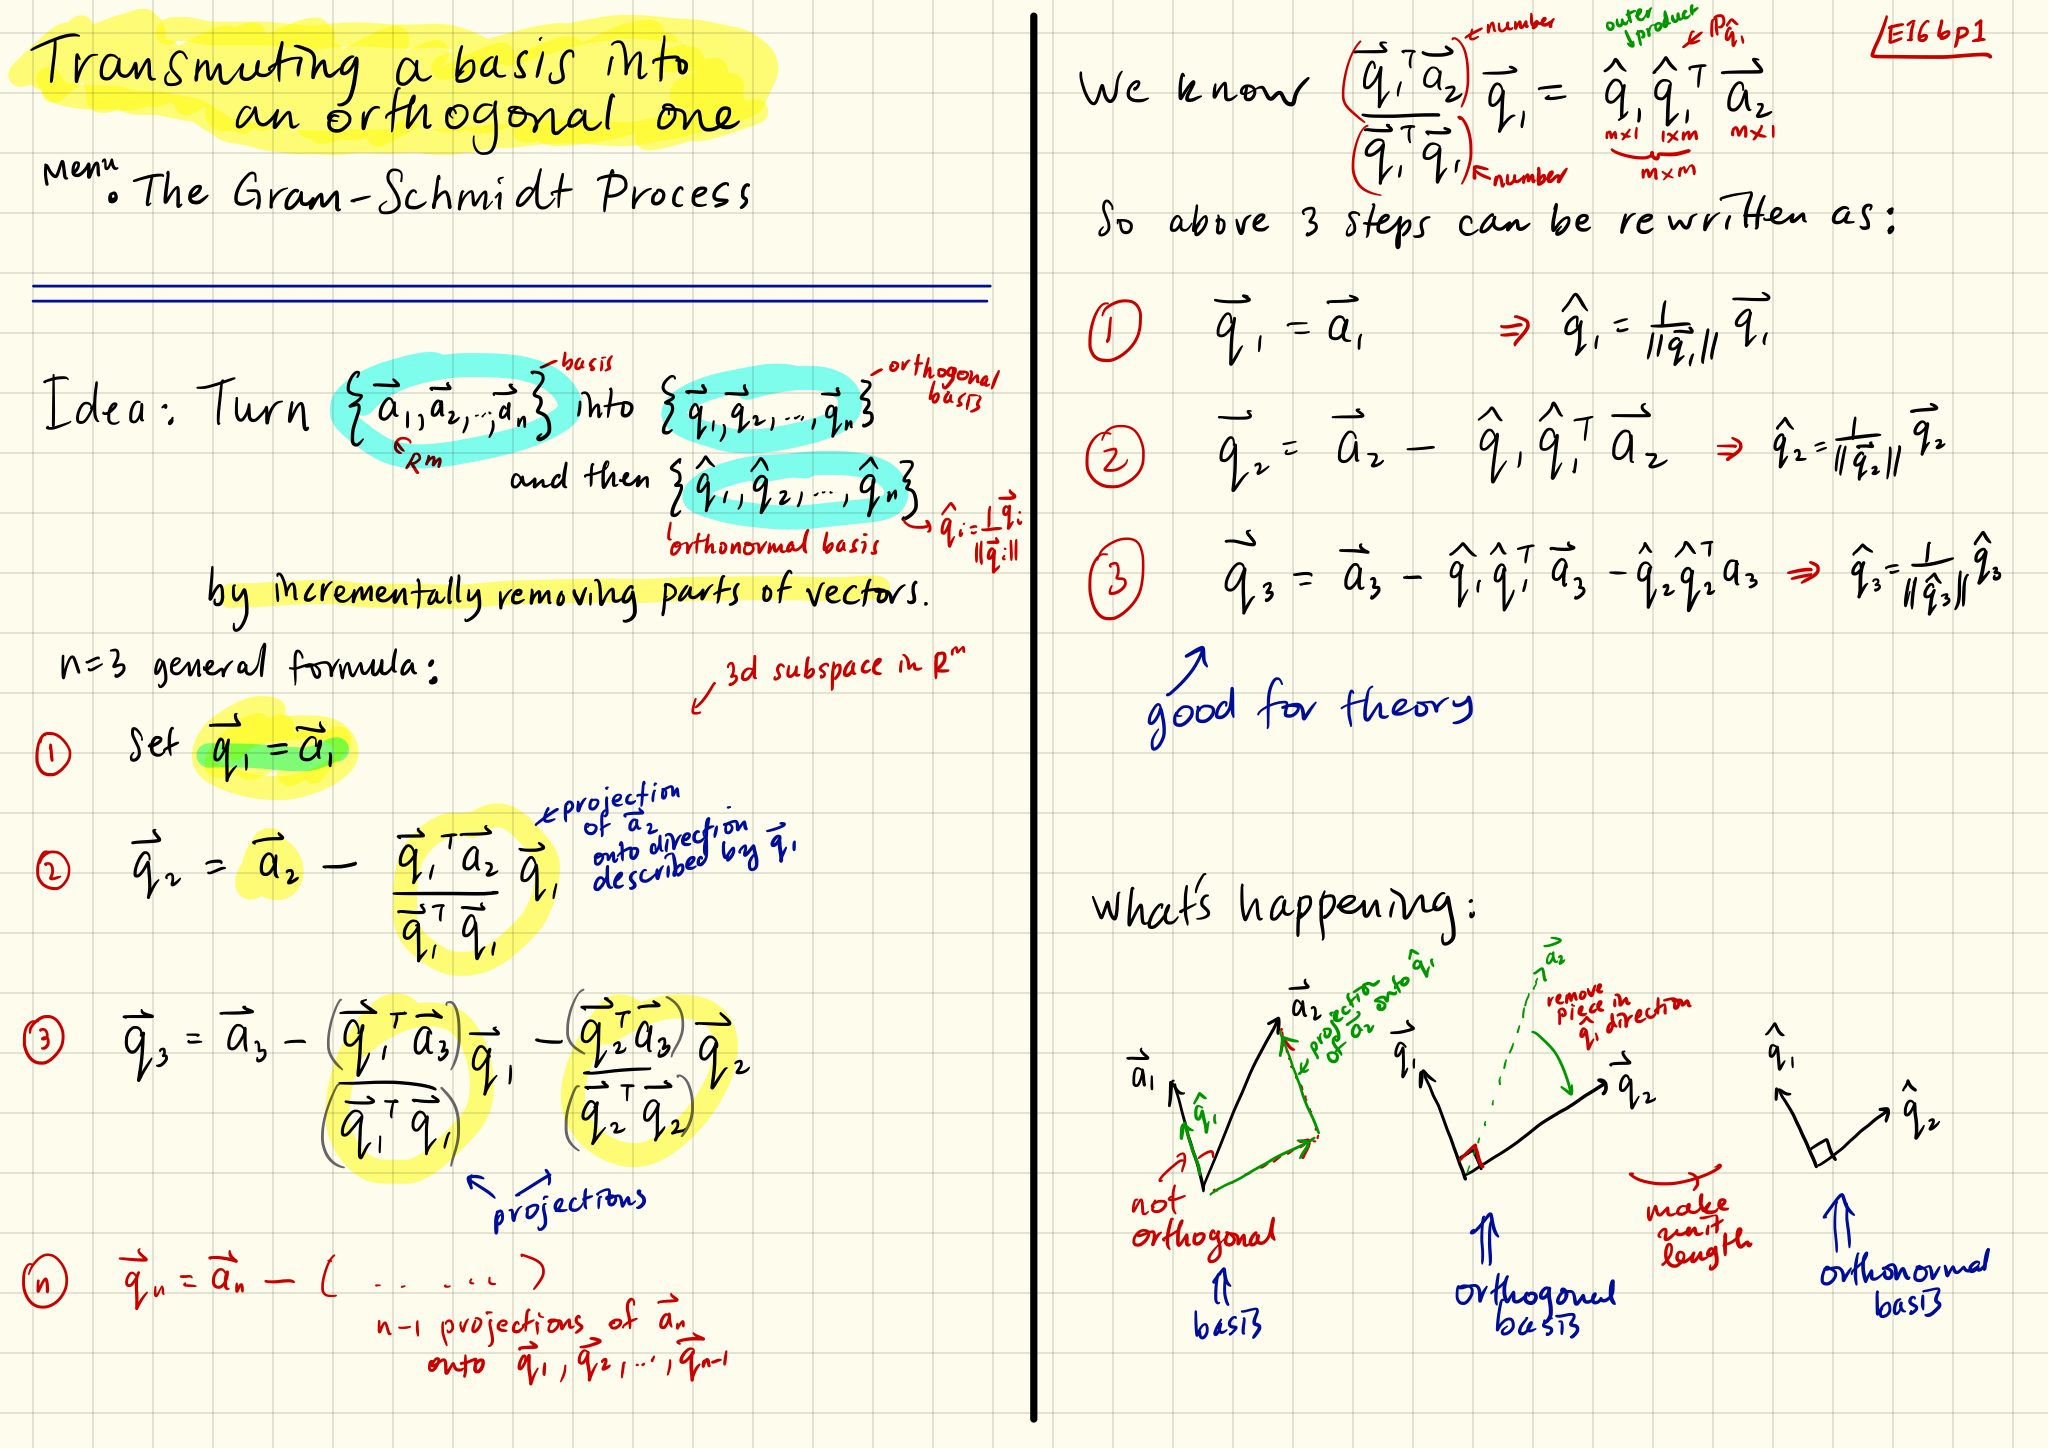 Transmuting a basis into
an orthogonal one
Menu
• The Gram-Schmidt Process
Idea: Turn {a⃗₁, a⃗₂, ..., a⃗ₙ} into {q⃗₁, q⃗₂, ..., q⃗ₙ}
basis
orthogonal
basis
Rᵐ
and then {q̂₁, q̂₂, ..., q̂ₙ}
orthonormal basis
q̂ᵢ = 1/||q⃗ᵢ|| q⃗ᵢ
by incrementally removing parts of vectors.
n=3 general formula:
3d subspace in Rᵐ
① Set q⃗₁ = a⃗₁
② q⃗₂ = a⃗₂ − (q⃗₁ᵀa⃗₂)/(q⃗₁ᵀq⃗₁) q⃗₁
projection
of a⃗₂
onto direction
described by q⃗₁
③ q⃗₃ = a⃗₃ − (q⃗₁ᵀa⃗₃)/(q⃗₁ᵀq⃗₁) q⃗₁ − (q⃗₂ᵀa⃗₃)/(q⃗₂ᵀq⃗₂) q⃗₂
projections
ⓝ q⃗ₙ = a⃗ₙ − ( . . . . . )
n-1 projections of a⃗ₙ
onto q⃗₁, q⃗₂, ..., q⃗ₙ₋₁
/E16bp1
We know (q⃗₁ᵀa⃗₂)/(q⃗₁ᵀq⃗₁) q⃗₁ = q̂₁q̂₁ᵀ a⃗₂
number
number
outer
product
P q̂₁
m×1 1×m m×1
m×m
So above 3 steps can be rewritten as:
① q⃗₁ = a⃗₁ ⇒ q̂₁ = 1/||q⃗₁|| q⃗₁
② q⃗₂ = a⃗₂ − q̂₁q̂₁ᵀ a⃗₂ ⇒ q̂₂ = 1/||q⃗₂|| q⃗₂
③ q⃗₃ = a⃗₃ − q̂₁q̂₁ᵀ a⃗₃ − q̂₂q̂₂ᵀ a₃ ⇒ q̂₃ = 1/||q̂₃|| q̂₃
good for theory
what's happening:
a⃗₁
q̂₁
a⃗₂
projection
of a⃗₂ onto q̂₁
not
orthogonal
basis
q⃗₁
a⃗₂
remove
piece in
q̂₁ direction
q⃗₂
orthogonal
basis
make
unit
length
q̂₁
q̂₂
orthonormal
basis